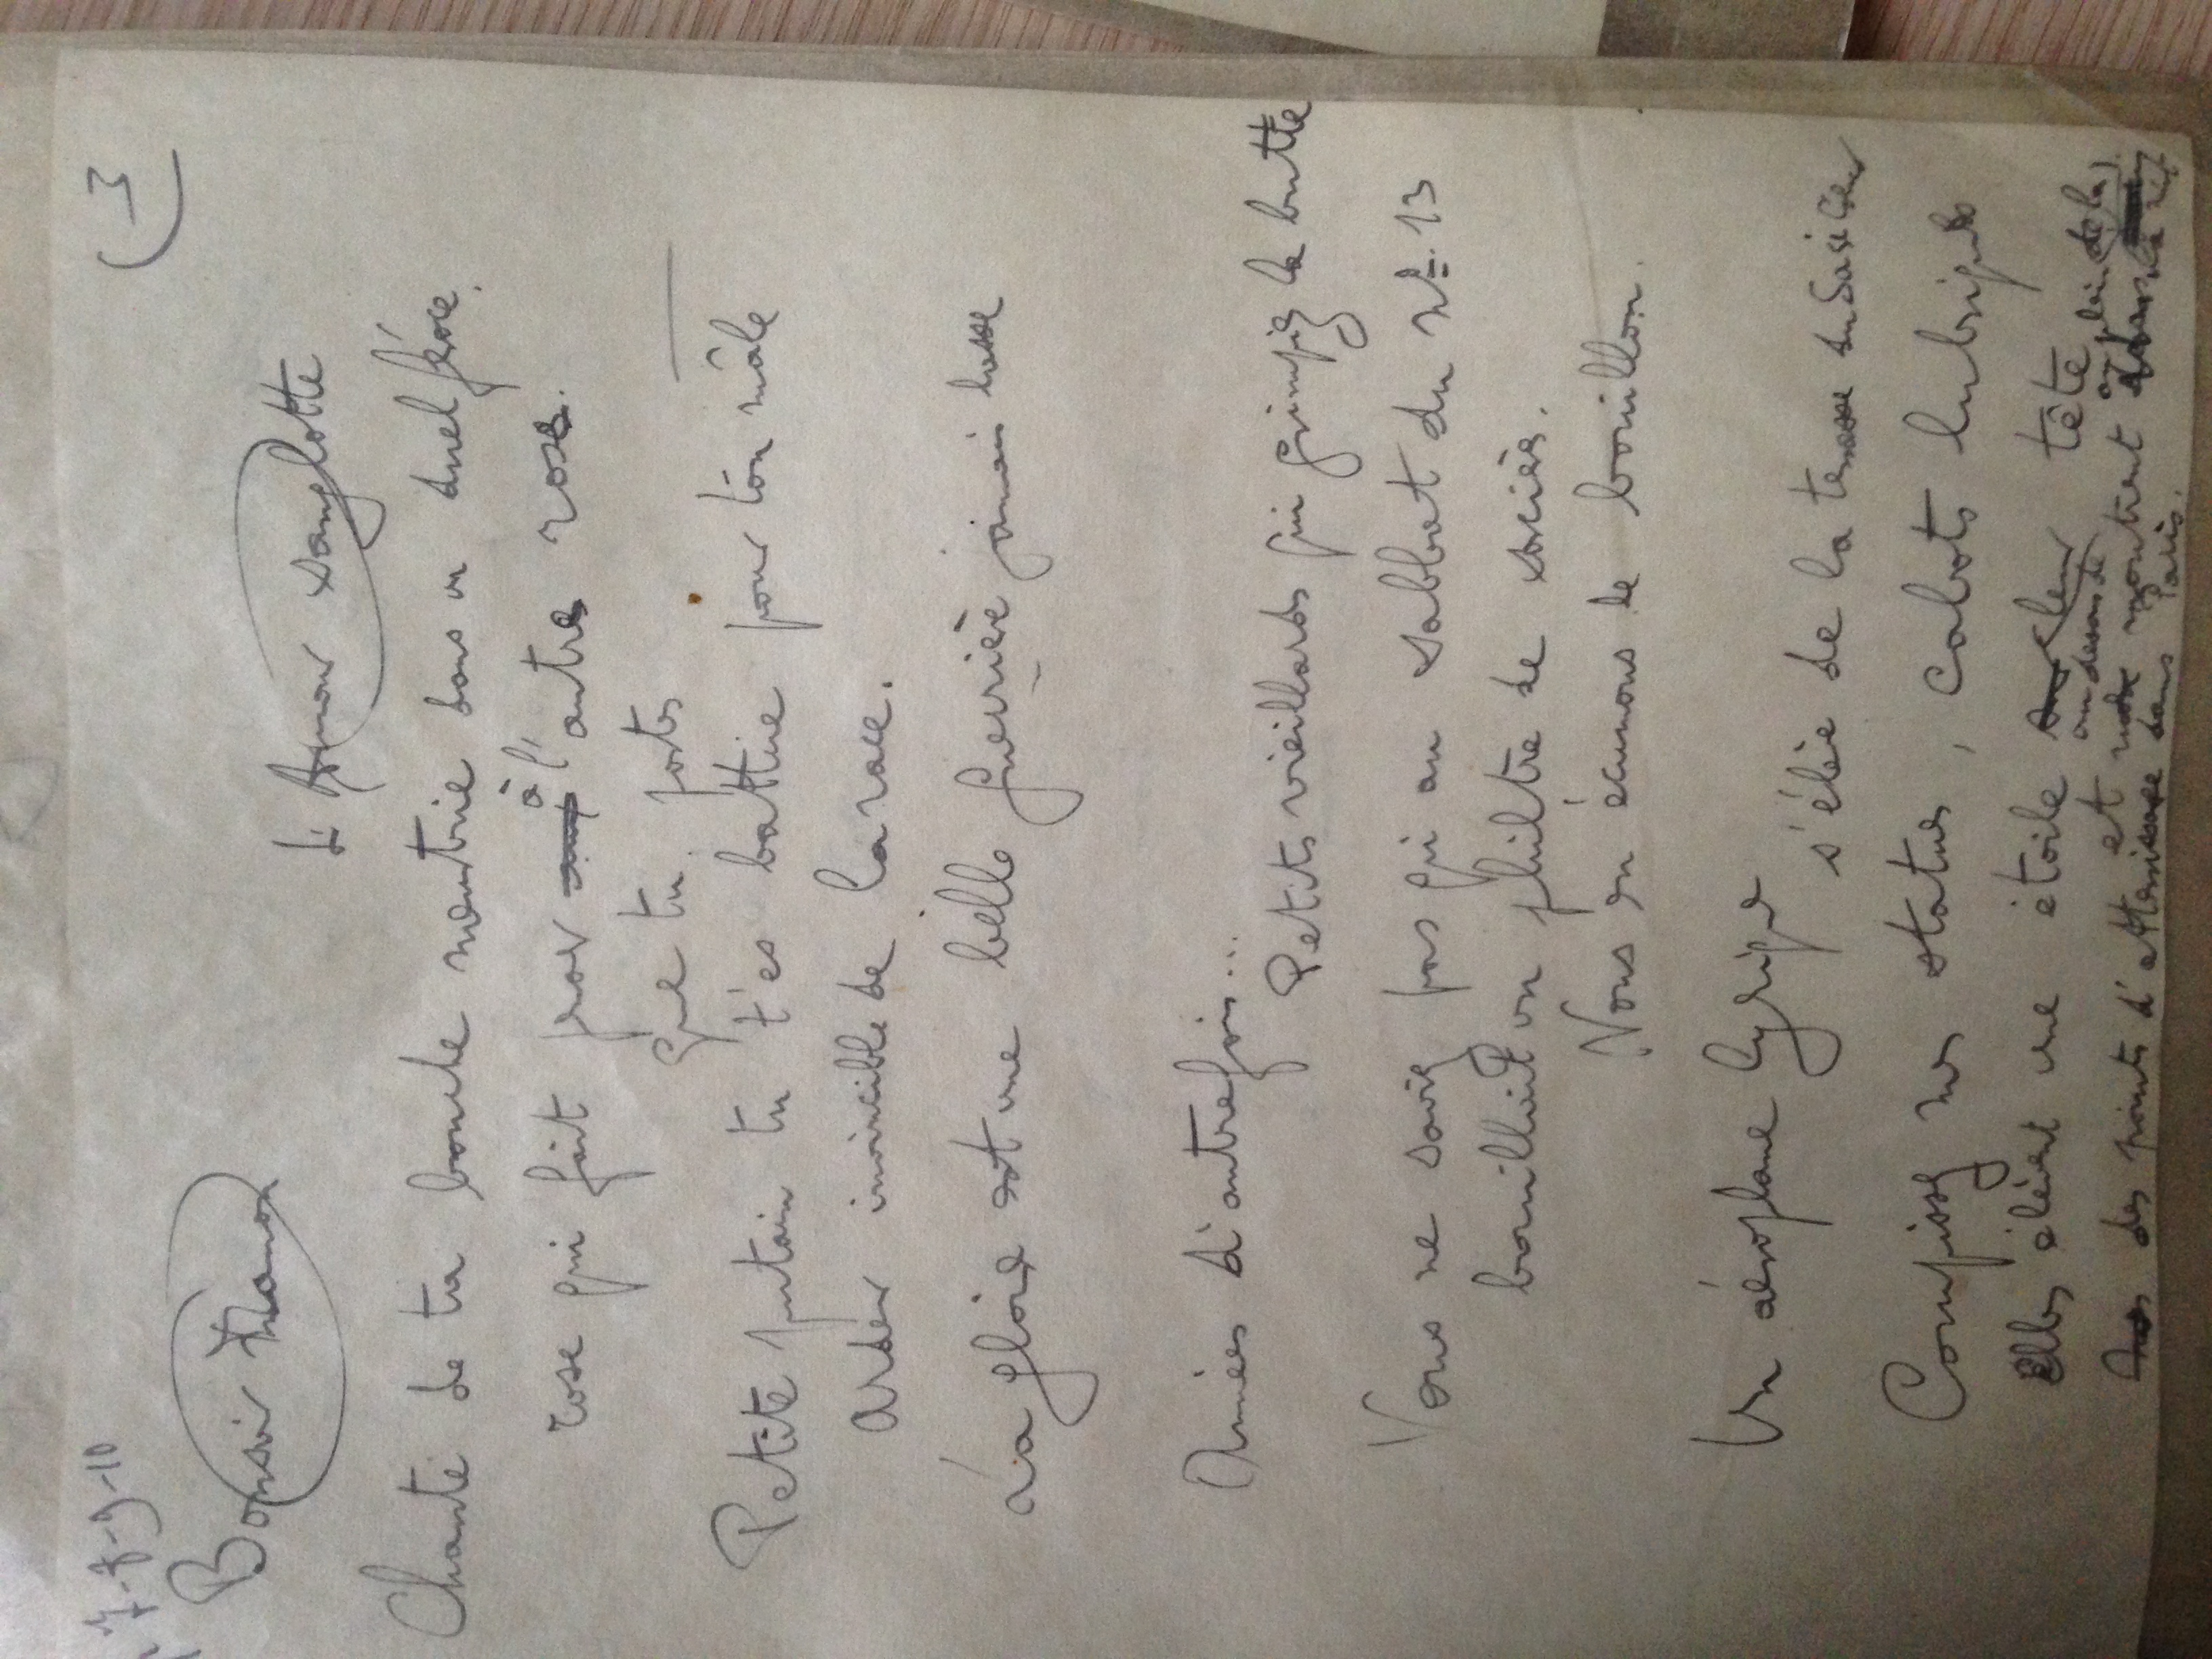 7-8-9-10
3
Bonsoir Manon
L'Amour sanglotte
Chante de ta bouche meurtrie dans un duel féroce,
rose qui fait penser aux à l'autre rose.
que tu portes
Petite putain tu t'es battue pour ton mâle
Ardeur invincible de la race.
La gloire est une belle guerrière jamais lasse
Années d'autrefois...
Petits vieillards qui grimpiez la butte
Vous ne saviez pas qu'au sabbat du Nº 13
bouillait un philtre de sorcière.
Nous en écumons le bouillon.
Un aéroplane lyrique
s'élève de la terrasse du Sacré Cœur
Compissez mes statues, cabots lubriques
Elles élèvent une étoile sur leur tête
au dessus de
et montrent
des points d'atterrissage dans Paris.